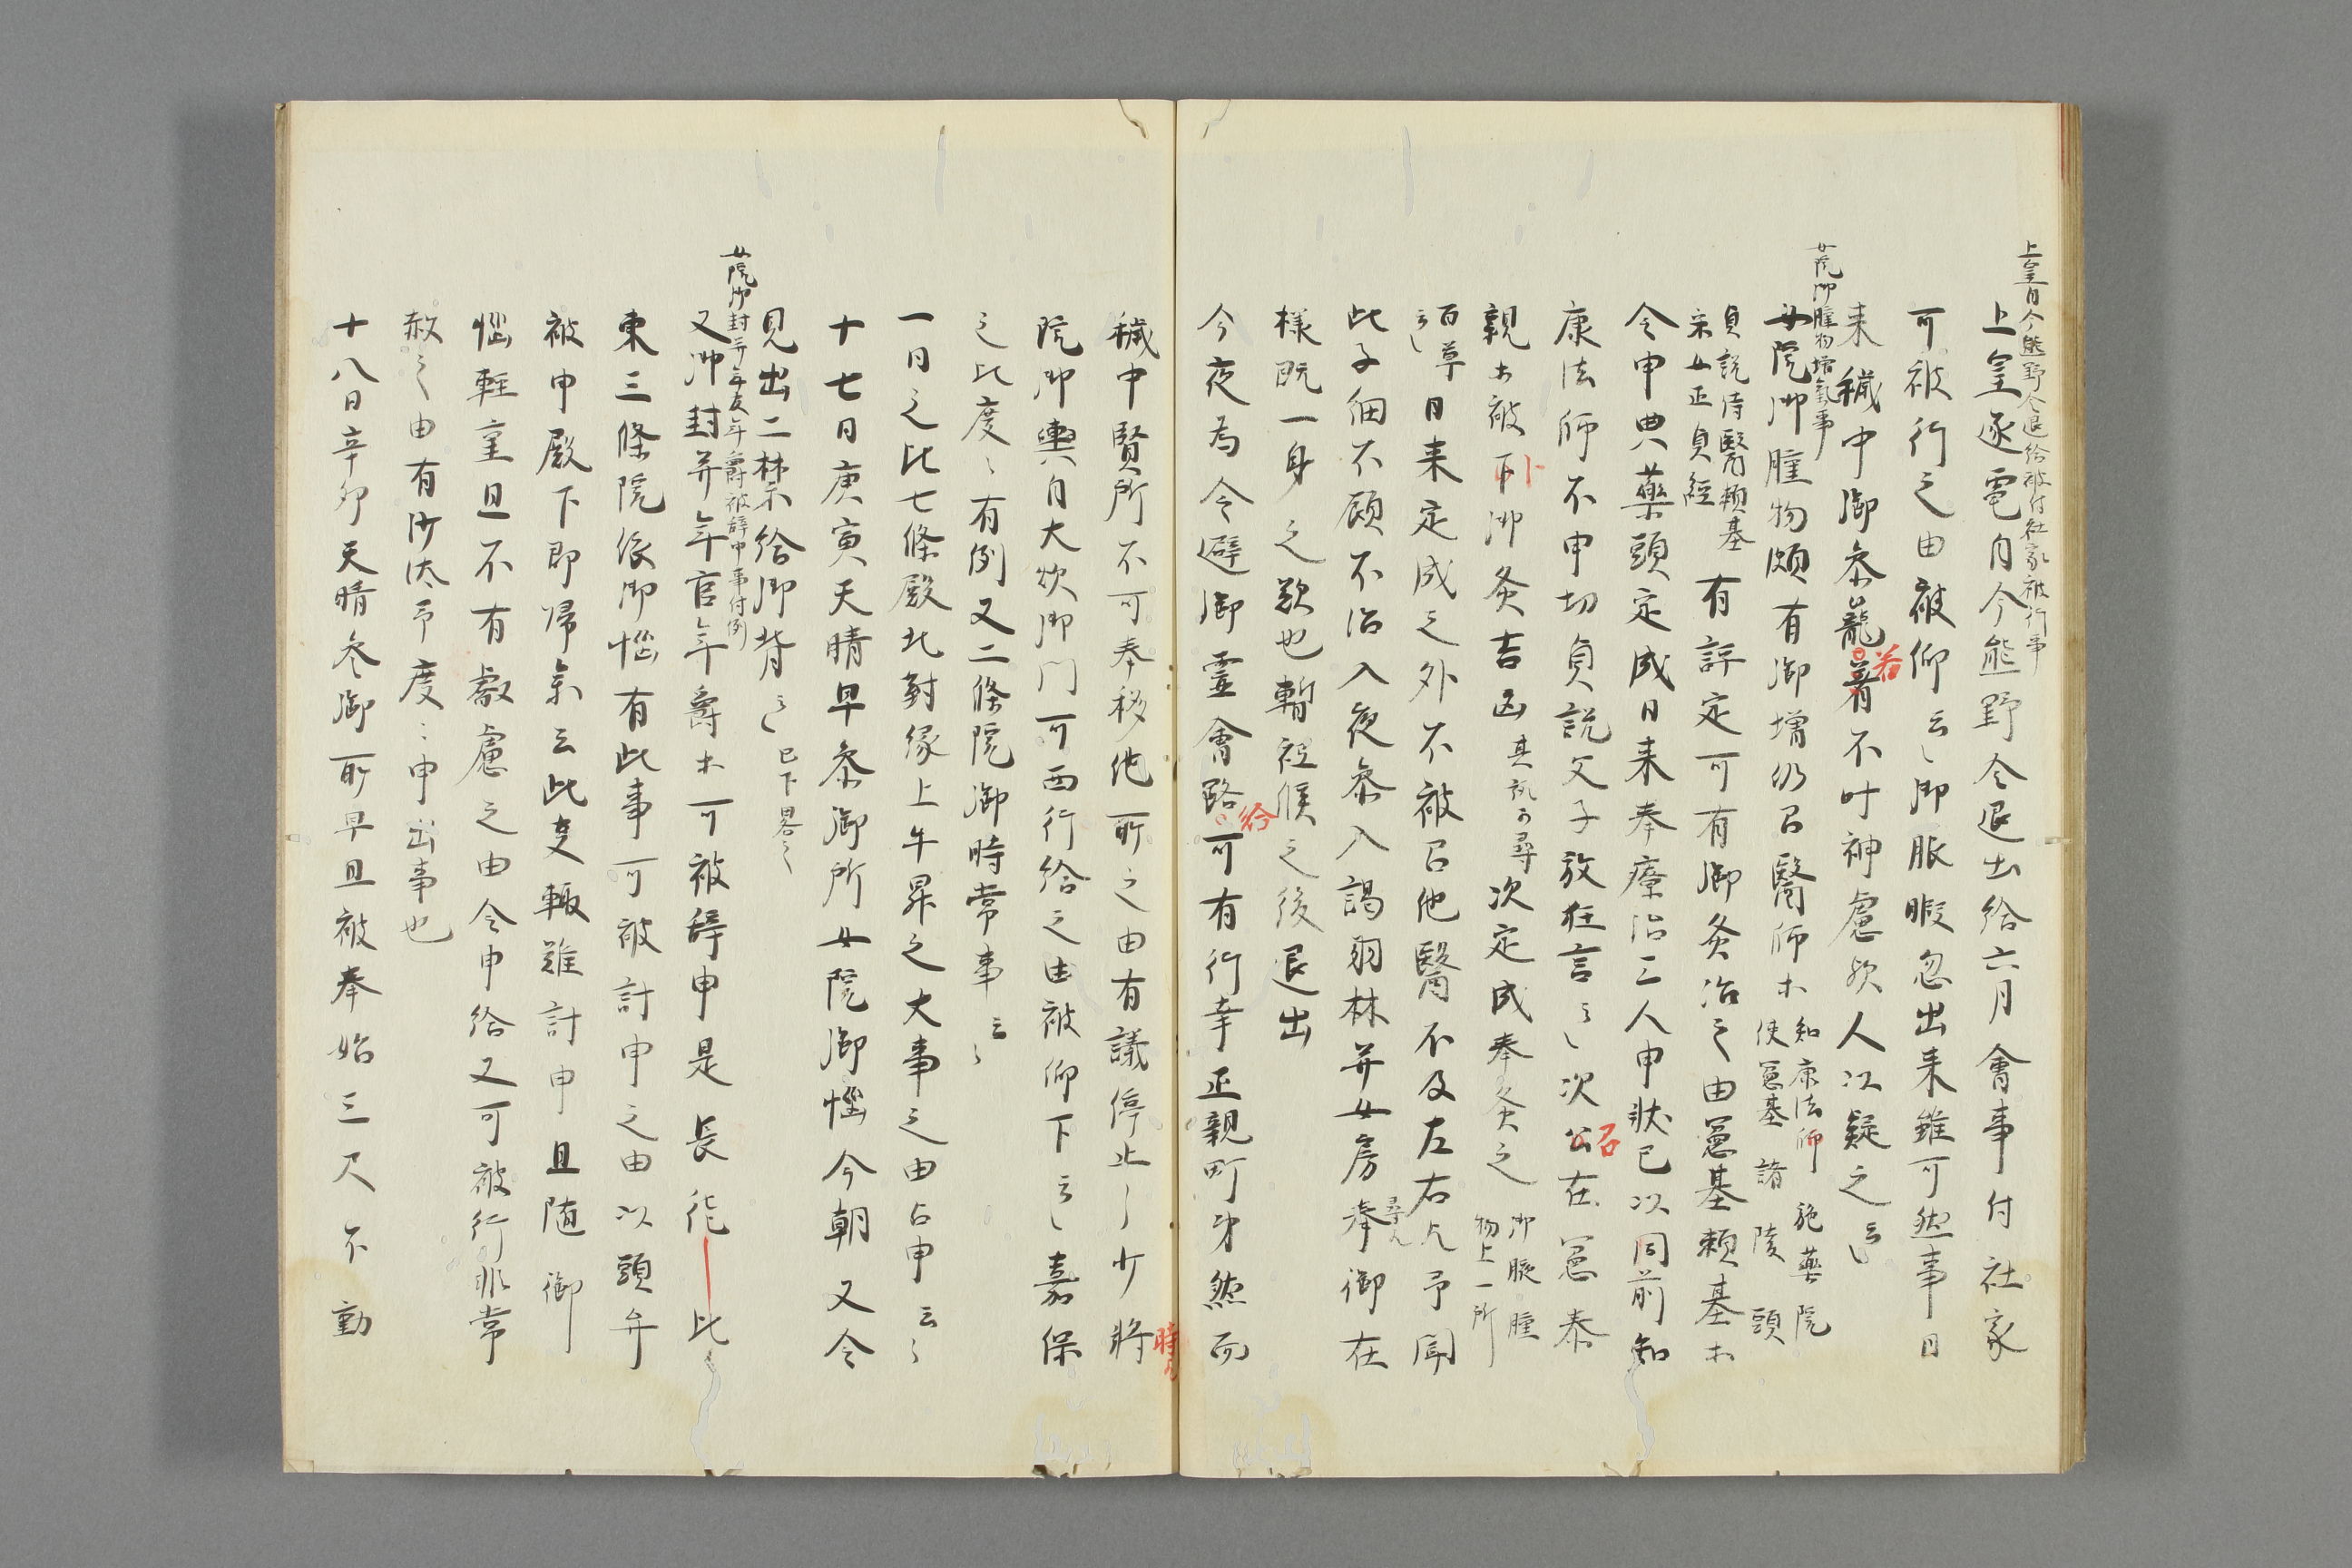 上皇自今熊野令退給被付社家被行事
上皇逐電自今熊野令退出給六月會事付社家
可被行之由被仰云々御服暇忽出来雖可然事日
来穢中御参籠着不叶神慮歟人以疑之云々
若
女院御腫物増氣事
女院御腫物頗有御増仍召醫師木知康法師 施薬院
使憲基 諸陵頭
貞説侍醫頼基
采女正貞経
有評定可有御灸治之由憲基頼基木
令申典薬頭定成日来奉療治三人申状已以同前知
康法師不申切貞説父子放狂言云々次召在憲泰
親木被下御灸吉凶其訊可尋次定成奉灸之御腋腫
物上一所
卜
百草
云々
日来定成之外不被召他醫不及左右欤予聞
尋欤
此子細不顧不治入夜参入謁羽林并女房奉御在
様既一身之歎也暫祗候之後退出
今夜為令避御霊會路可有行幸正親町第然而
行
穢中賢所不可奉移他所之由有議停止了少将
時家
院御輿自大炊御門可西行給之由被仰下云々嘉保
之比度々有例又二條院御時常事云々
一日之比七條殿北對縁上牛昇之大事之由占申云々
十七日庚寅天晴早参御所女院御惱今朝又令
見出二禁給御背云々已下略之
女院御封并年官年爵被辞申事付例
又御封并年官年爵木可被辞申是長徳比
東三條院依御惱有此事可被計申之由以頭弁
被申殿下即帰来云此事輙難計申且随御
惱軽重且不有叡慮之由令申給又可被行非常
赦之由有沙汰予度々申出事也
十八日辛卯天晴参御所早旦被奉始三尺不動